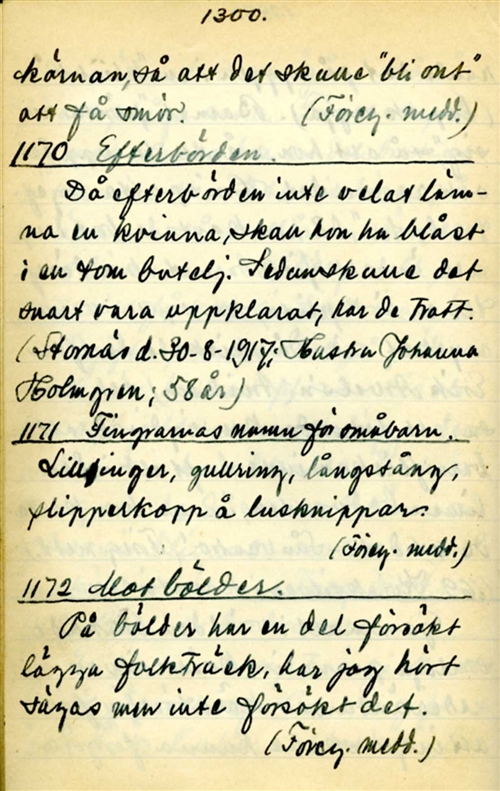 1300.
kärnan, så att det skulle "bli ont"
att få smör. (Föreg. medd.)
1170 Efterbörden.
Då efterbörden inte velat läm-
na en kvinna, skall hon ha blåst
i en tom butelj. Sedan skulle det
snart vara uppklarat, har de trott.
(Stornäs d. 30-8-1917; Hustru Johanna
Holmgren; 58 år)
1171 Fingrarnas namn för småbarn.
Lillfinger, gullring, långstång,
slipperkopp å lusknippar.
(Föreg. medd.)
1172 Mot bölder.
På bölder har en del försökt
lägga folkträck, har jag hört
sägas men inte försökt det.
(Föreg. medd.)